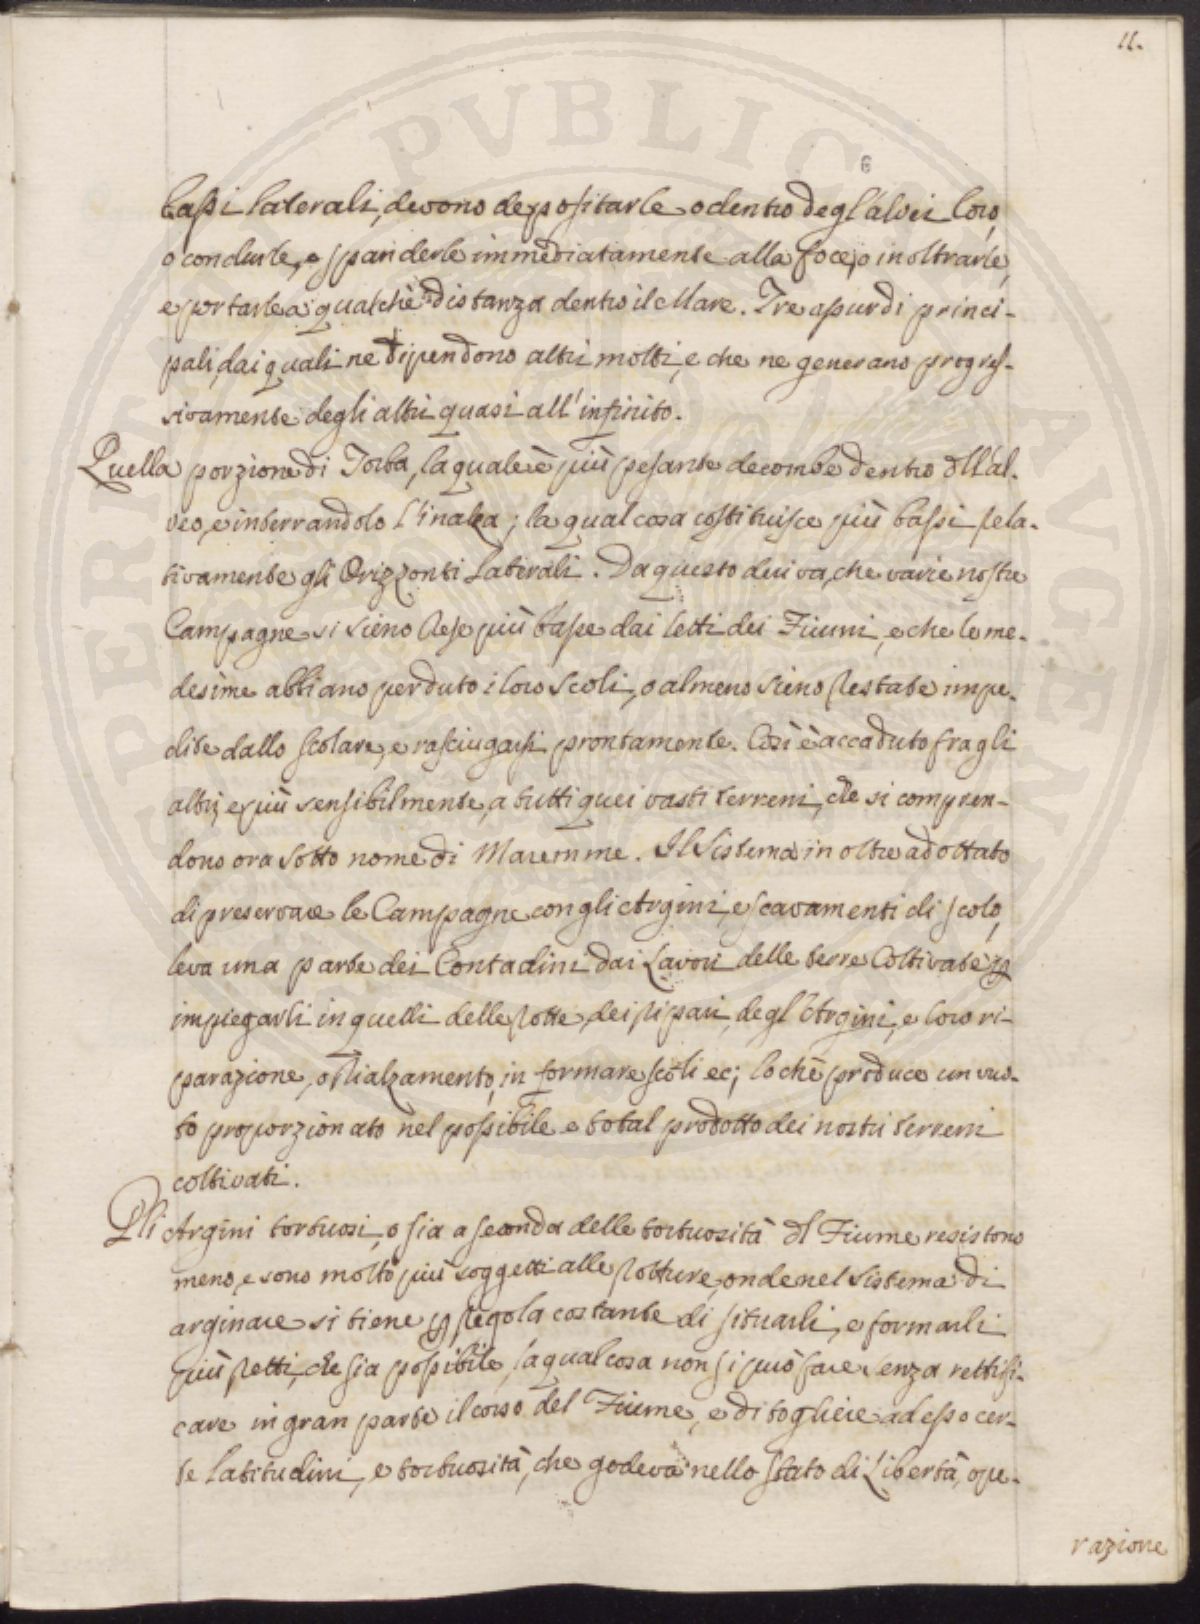 11.
6
bassi laterali, devono depositarle o dentro degl'alvei loro,
o condurle, e spanderle immediatamente alla foce, o inoltrarle,
e portarle a qualche distanza dentro il Mare. Tre assurdi princi-
pali, dai quali ne dipendono altri molti, e che ne generano progres-
sivamente degli altri quasi all'infinito.
Quella porzione di Torba, la quale è più pesante decombe dentro dell'al-
veo, e interrandolo l'inalza; la qual cosa costituisce più bassi rela-
tivamente gli Orizzonti laterali. Da questo deriva, che varie nostre
Campagne si sieno rese più basse dai letti dei Fiumi, e che le me-
desime abbiano perduto i loro scoli, o almeno sieno restate impe-
dite dallo scolare, e rasciugarsi prontamente. Così è accaduto fra gli
altri, e più sensibilmente, a tutti quei vasti terreni, che si compren-
dono ora sotto nome di Maremme. Il Sistema in oltre adottato
di preservare le Campagne con gli Argini, e scavamenti di scolo,
leva una parte dei Contadini dai Lavori delle terre Coltivate p
impiegarli in quelli delle rotte, dei ripari, degl'Argini, e loro ri-
parazione, o rialzamento, in formare scoli ec; lo chè produce un vuo-
to proporzionato nel possibile e total prodotto dei nostri terreni
coltivati.
Gli Argini tortuosi, o sia a seconda delle tortuosità dl Fiume resistono
meno, e sono molto più soggetti alle rotture, onde nel sistema di
arginare si tiene p regola costante di situarli, e formarli
più retti, che sia possibile, la qual cosa non si può fare senza rettifi-
care in gran parte il corso del Fiume, e di togliere ad esso cer-
te latitudini, e tortuosità, che godeva nello stato di Libertà, ope-
razione
PUBLIC